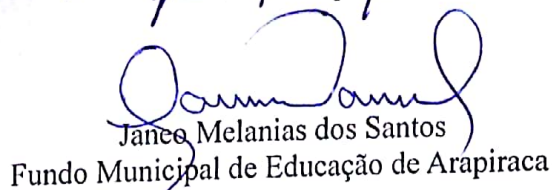 Janeo Melanias dos Santos
Fundo Municipal de Educação de Arapiraca